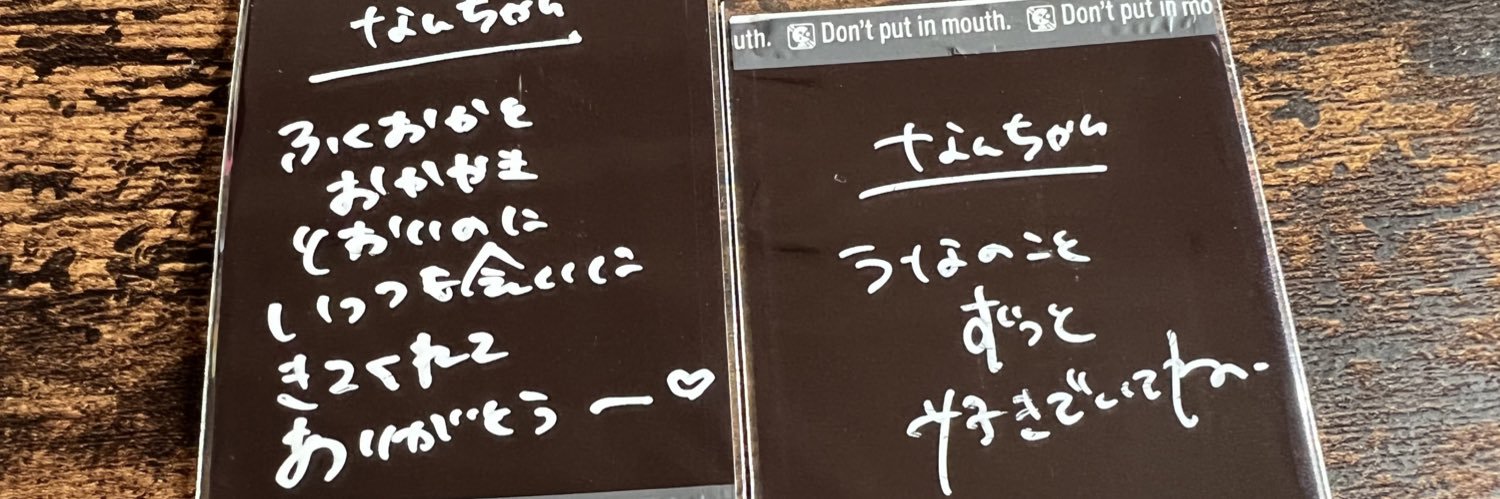 なんちゃん
ふくおかと
おかやま
とおいのに
いっつも会いに
きてくれて
ありがとうー♡
uth. Don't put in mouth. Don't put in mo
なんちゃん
うなのこと
ずっと
好きでいてねー